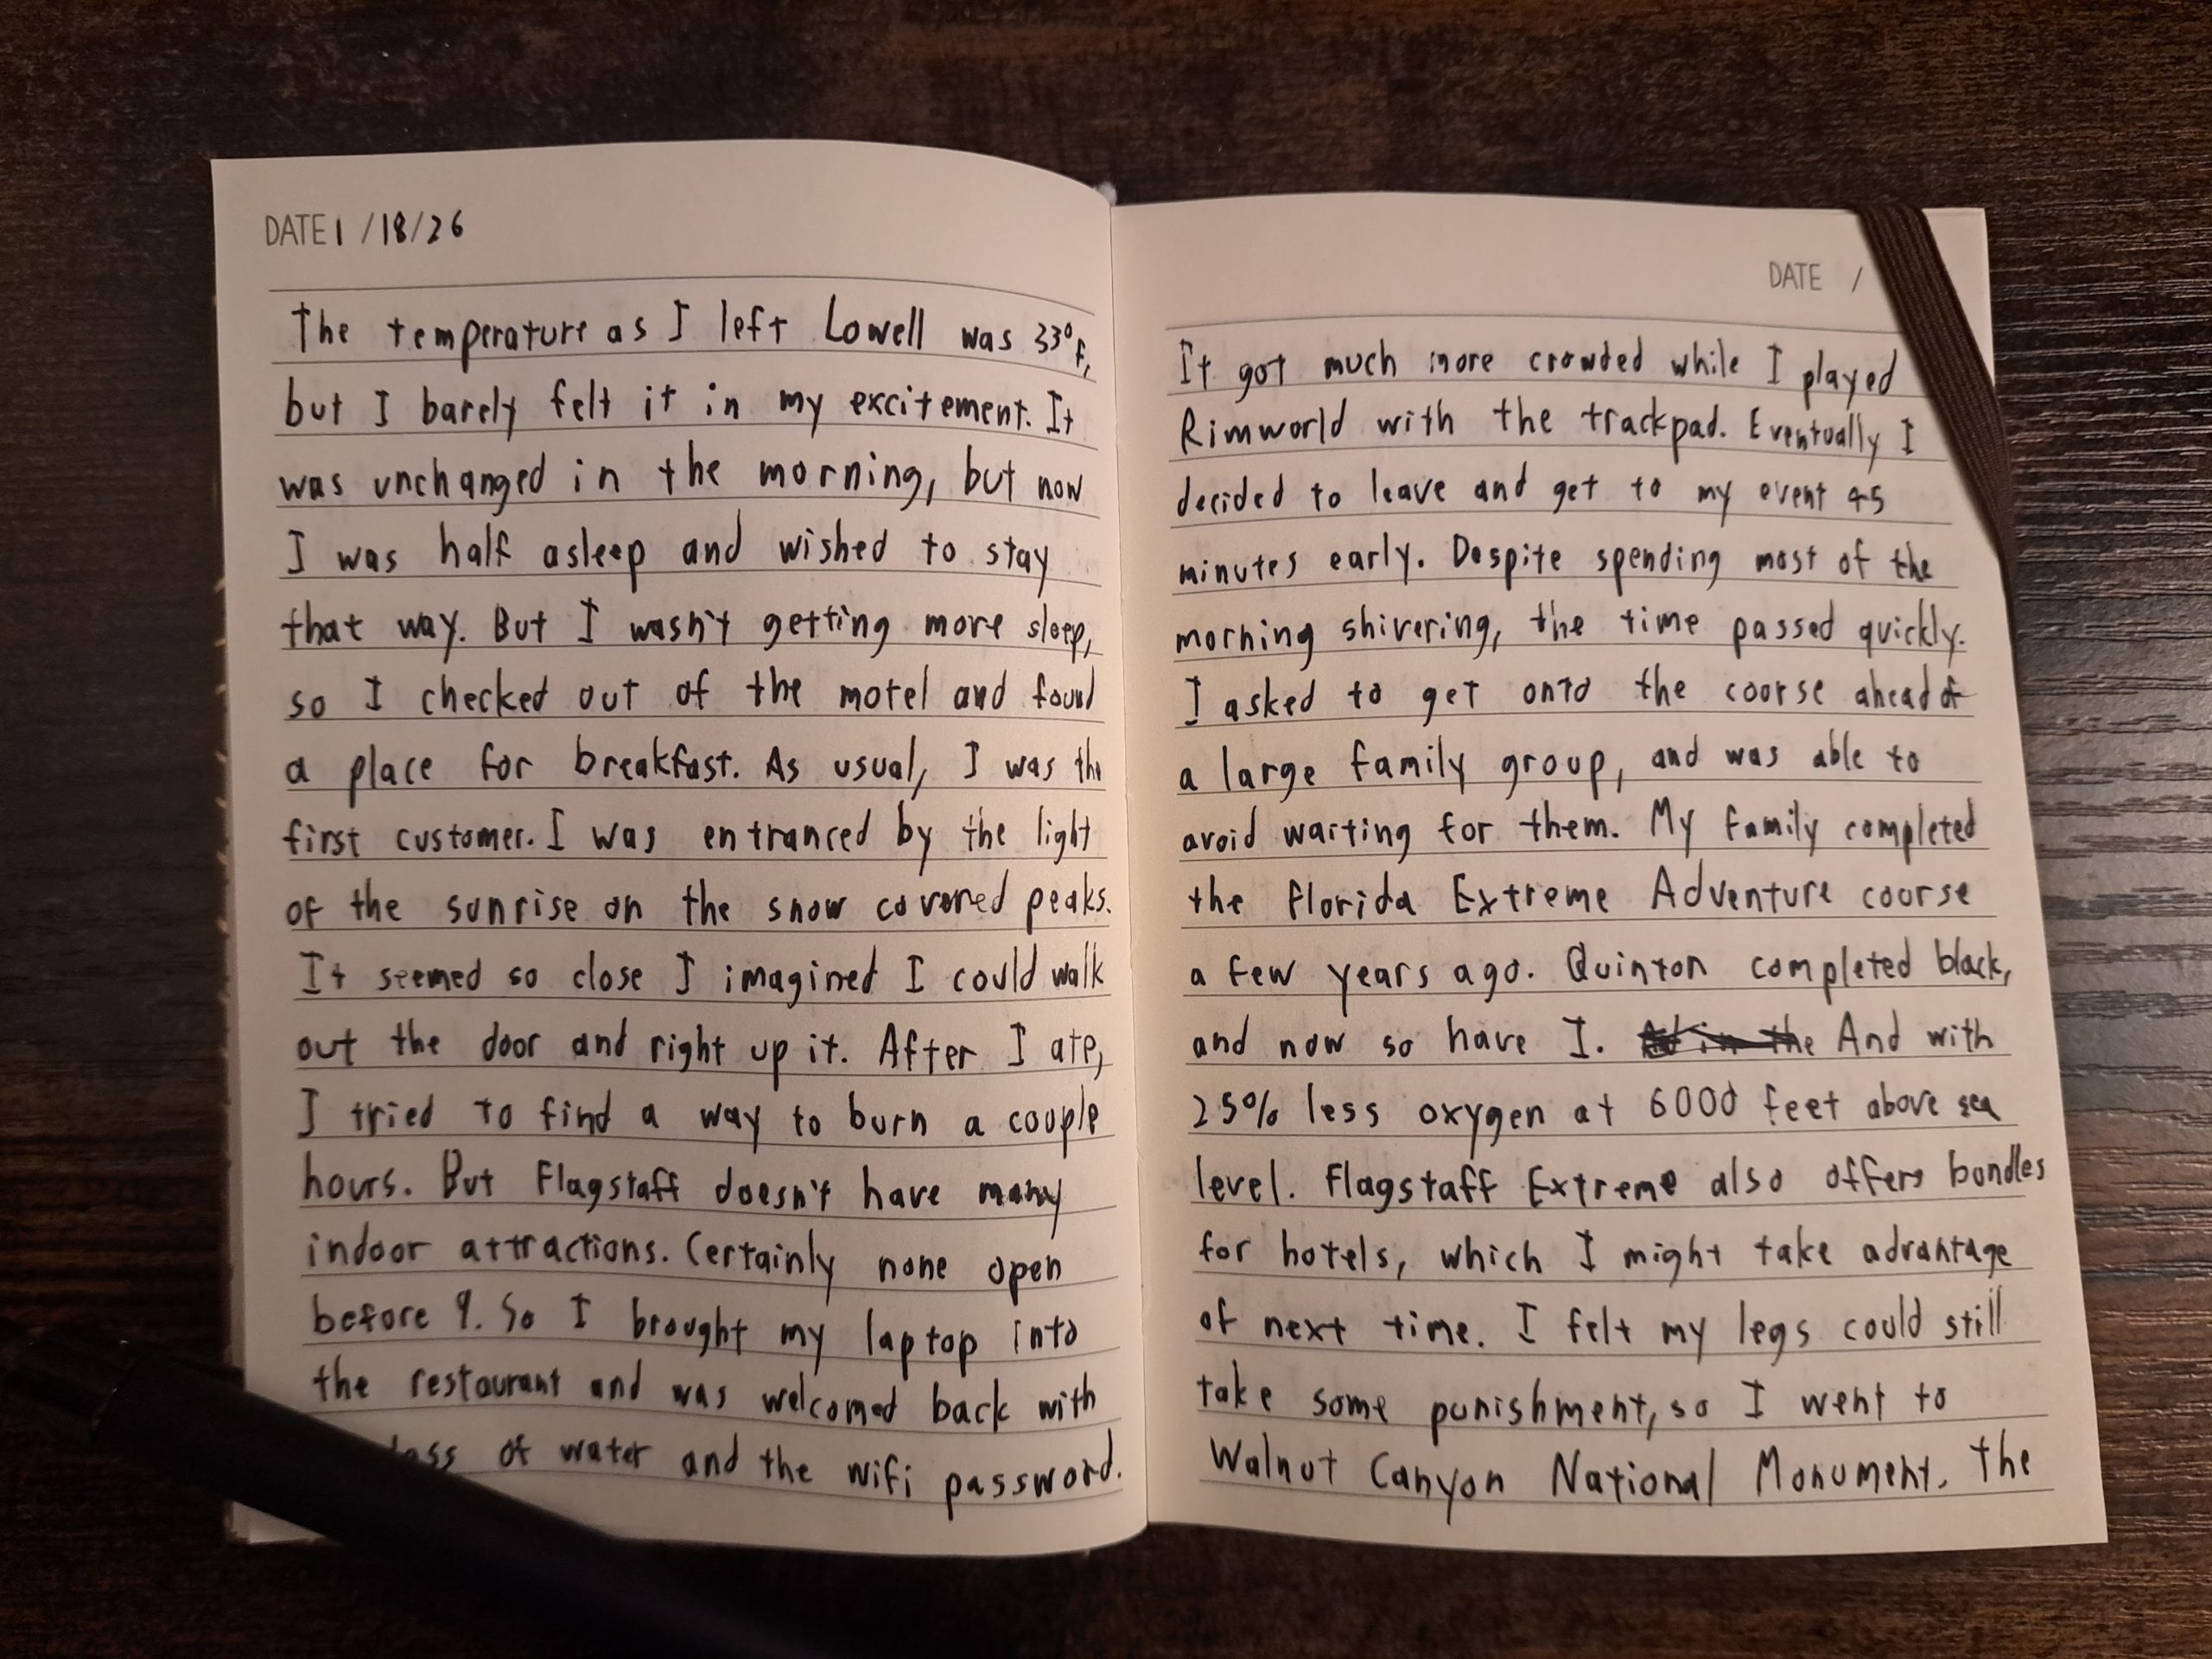 DATE 1/18/26
The temperature as I left Lowell was 33°F,
but I barely felt it in my excitement. It
was unchanged in the morning, but now
I was half asleep and wished to stay
that way. But I wasn't getting more sleep,
so I checked out of the motel and found
a place for breakfast. As usual, I was the
first customer. I was entranced by the light
of the sunrise on the snow covered peaks.
It seemed so close I imagined I could walk
out the door and right up it. After I ate,
I tried to find a way to burn a couple
hours. But Flagstaff doesn't have many
indoor attractions. Certainly none open
before 9. So I brought my laptop into
the restaurant and was welcomed back with
of water and the wifi password.
DATE /
It got much more crowded while I played
Rimworld with the trackpad. Eventually I
decided to leave and get to my event 45
minutes early. Despite spending most of the
morning shivering, the time passed quickly.
I asked to get onto the course ahead of
a large family group, and was able to
avoid waiting for them. My family completed
the Florida Extreme Adventure course
a few years ago. Quinton completed black,
and now so have I. And with
25% less oxygen at 6000 feet above sea
level. Flagstaff Extreme also offers bundles
for hotels, which I might take advantage
of next time. I felt my legs could still
take some punishment, so I went to
Walnut Canyon National Monument. The